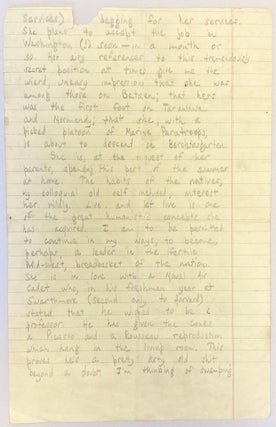 services) begging for her services.
She plans to accept the job in
Washington (!) soon — in a month or
so. Her airy references to this tremendously
secret position at times give me the
weird uneasy impression that she was
among those on Bataan; that hers
was the first foot on Tarawa
and Normandy; that she, with a
picked platoon of Marine Paratroops,
is about to descend on Berchtesgaden.
She is, at the request of her
parents, spending this part of the summer
at home. The habits of the natives,
my colloquial old self included, interest
her mildly. Live and let live is one
of the great humanistic concepts she
has acquired. I am to be permitted
to continue in my ways, to become,
perhaps, a leader in the fertile
Mid-West, breadbasket of the nation.
She is in love with a Naval Air
Cadet who, in his freshman year at
Swarthmore (second only to Harvard)
stated that he wished to be a
professor. He has given the
a Picasso and a Rousseau reproduction
which hang in the living room. This
proves he's a pretty arty old shit
beyond a doubt. I'm thinking of swamping